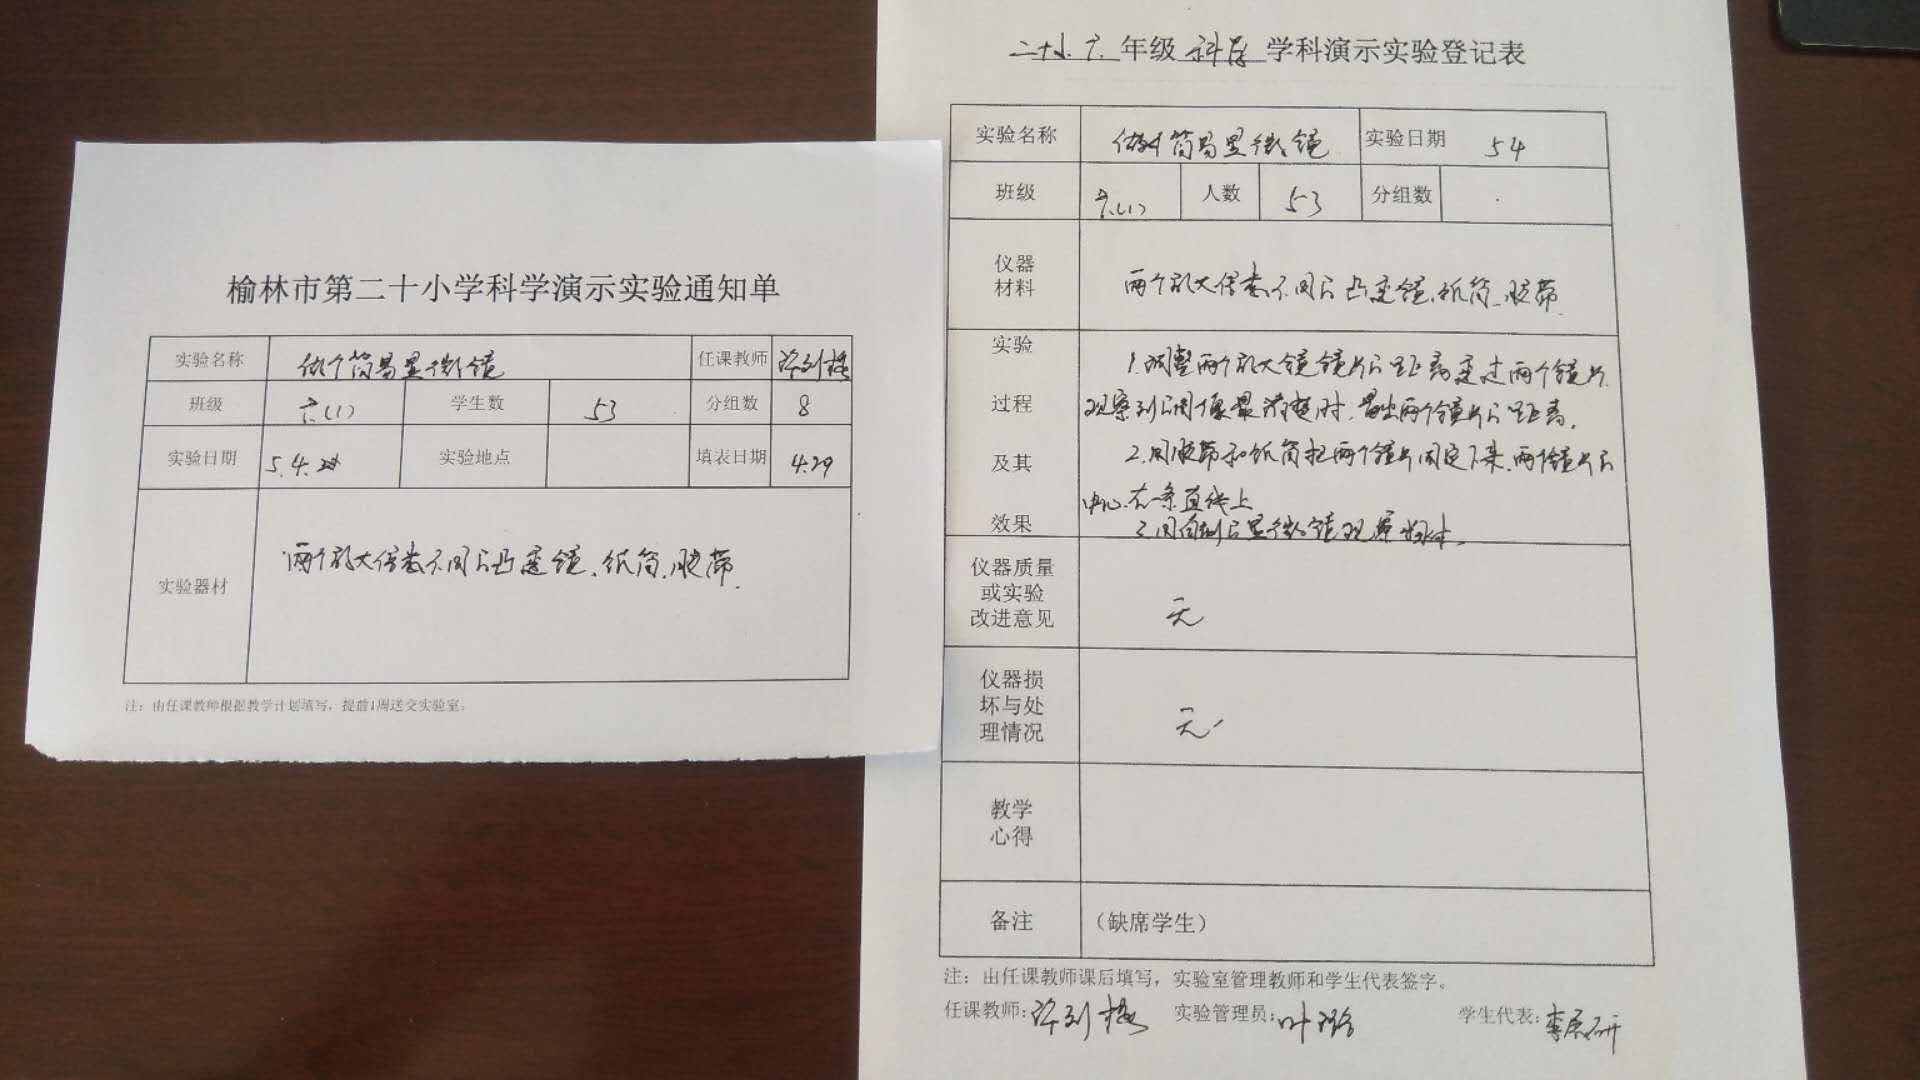 榆林市第二十小学科学演示实验通知单
实验名称 做个简易显微镜 任课教师
班级 六(1) 学生数 53 分组数 8
实验日期 5.4 实验地点 填表日期 4.29
实验器材 两个放大倍数不同的凸透镜、纸筒、胶带.
注：由任课教师根据教学计划填写，提前1周送交实验室。
二十小 六 年级 科学 学科演示实验登记表
实验名称 做个简易显微镜 实验日期 5.4
班级 六(1) 人数 53 分组数
仪器材料 两个放大倍数不同的凸透镜、纸筒、胶带
实验过程及其效果
1.调整两个放大镜镜片的距离透过两个镜片
观察到的图像最清楚时,量出两个镜片的距离.
2.用胶带和纸筒把两个镜片固定下来,两个镜片的
中心在一条直线上
3.用自制的显微镜观察物体.
仪器质量或实验改进意见 无
仪器损坏与处理情况 无
教学心得
备注 （缺席学生）
注：由任课教师课后填写，实验室管理教师和学生代表签字。
任课教师: 实验管理员: 学生代表: